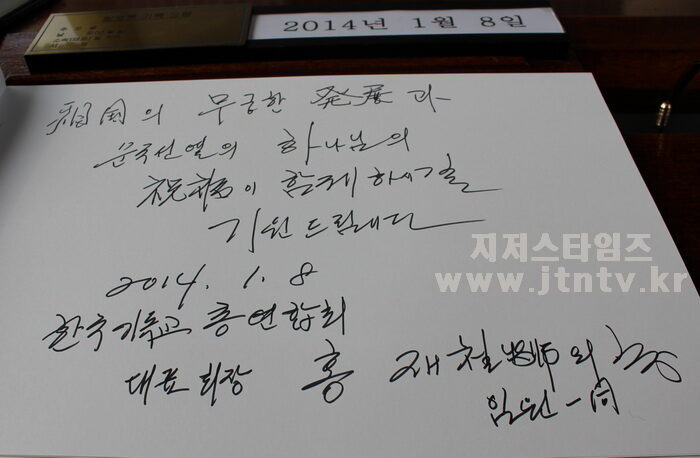 2014년 1월 8일
祖國의 무궁한 発展과
순국선열의 하나님의
祝福이 함께 하시기를
기원드립니다
2014. 1. 8
한국기독교총연합회
대표회장 홍재철 牧師외
임원一同
지저스타임즈
www.jtntv.kr